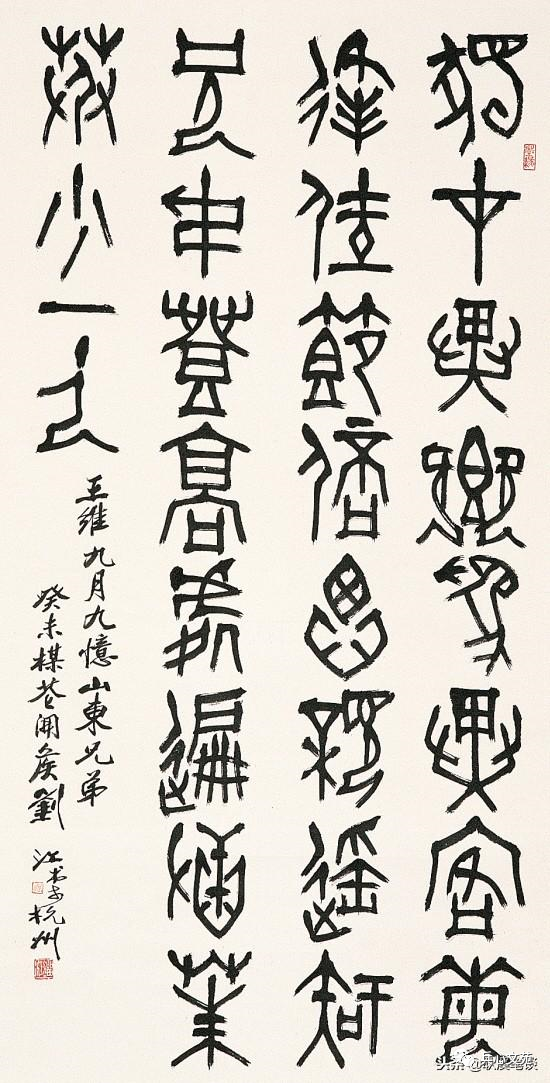 獨在異鄉為異客每
逢佳節倍思親遙知
兄弟登高處遍插茱
萸少一人
王維九月九憶山東兄弟
癸未楳花開候劉江書于杭州